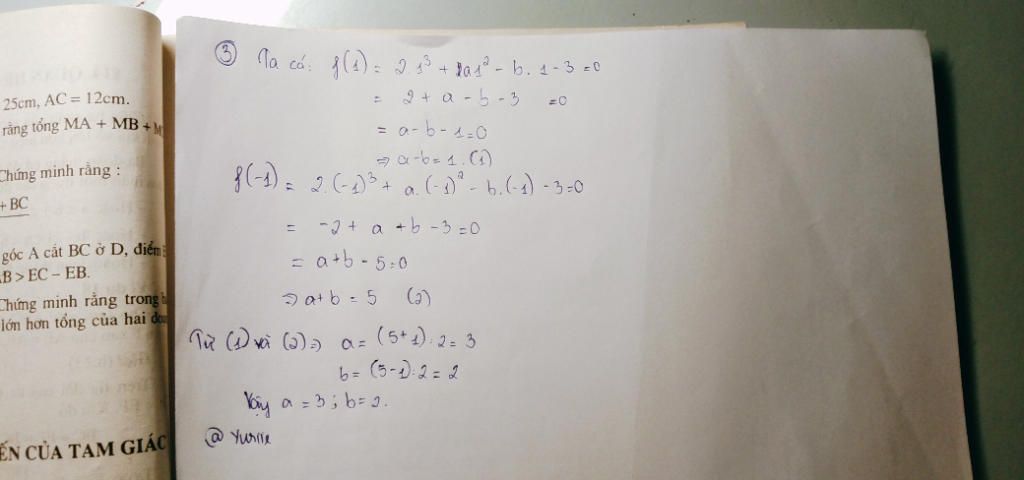 25cm, AC = 12cm.
rằng tổng MA + MB +
Chứng minh rằng :
+ BC
góc A cắt BC ở D, điểm
B > EC – EB.
Chứng minh rằng trong
lớn hơn tổng của hai
ẾN CỦA TAM GIÁC
③ Ta có: f(1) = 2.1³ + a1² - b.1 - 3 = 0
= 2 + a - b - 3 = 0
= a - b - 1 = 0
⇒ a - b = 1. (1)
f(-1) = 2.(-1)³ + a.(-1)² - b.(-1) - 3 = 0
= -2 + a + b - 3 = 0
= a + b - 5 = 0
⇒ a + b = 5 (2)
Từ (1) và (2) ⇒ a = (5+1):2 = 3
b = (5-1):2 = 2
Vậy a = 3 ; b = 2.
@